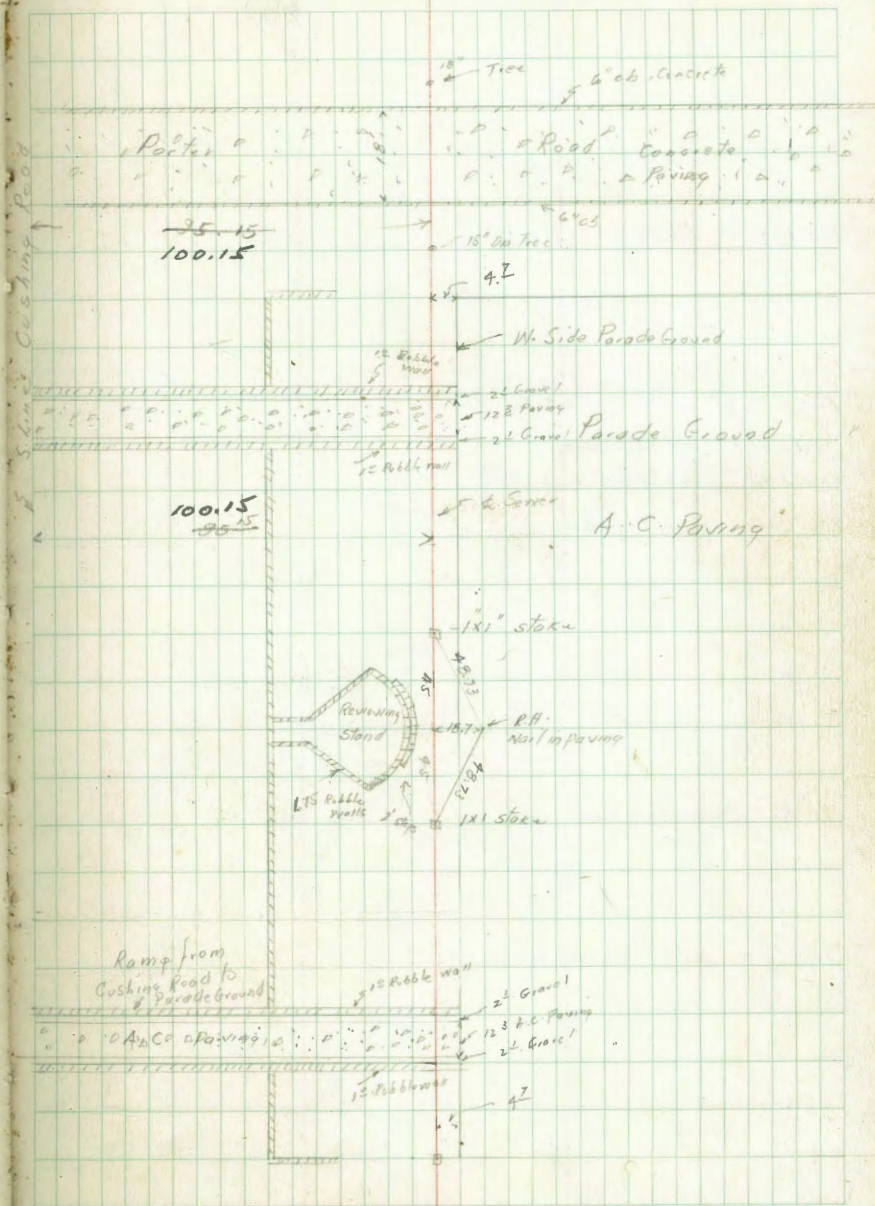 18" Tree
6" cb. Concrete
Porter Road Concrete
Paving
18'
6" cb
95.15
100.15
15" Dia Tree
4.7
W. Side Parade Ground
Rubble
wall
2 Gravel
12 3 Paving
2 Gravel
Parade Ground
Rubble wall
Cushing Road
100.15
95 15
Sewer
A.C. Paving
1x1" stake
48.73
45
Reviewing
Stand
18.7
P.H.
Nail in paving
45
48.73
Rubble
Walls
1x1 stake
Ramp from
Cushing Road to
Parade Ground
Rubble wall
2 Gravel
A.C. Paving
12 3 A.C. Paving
2 Gravel
Rubble wall
4 7